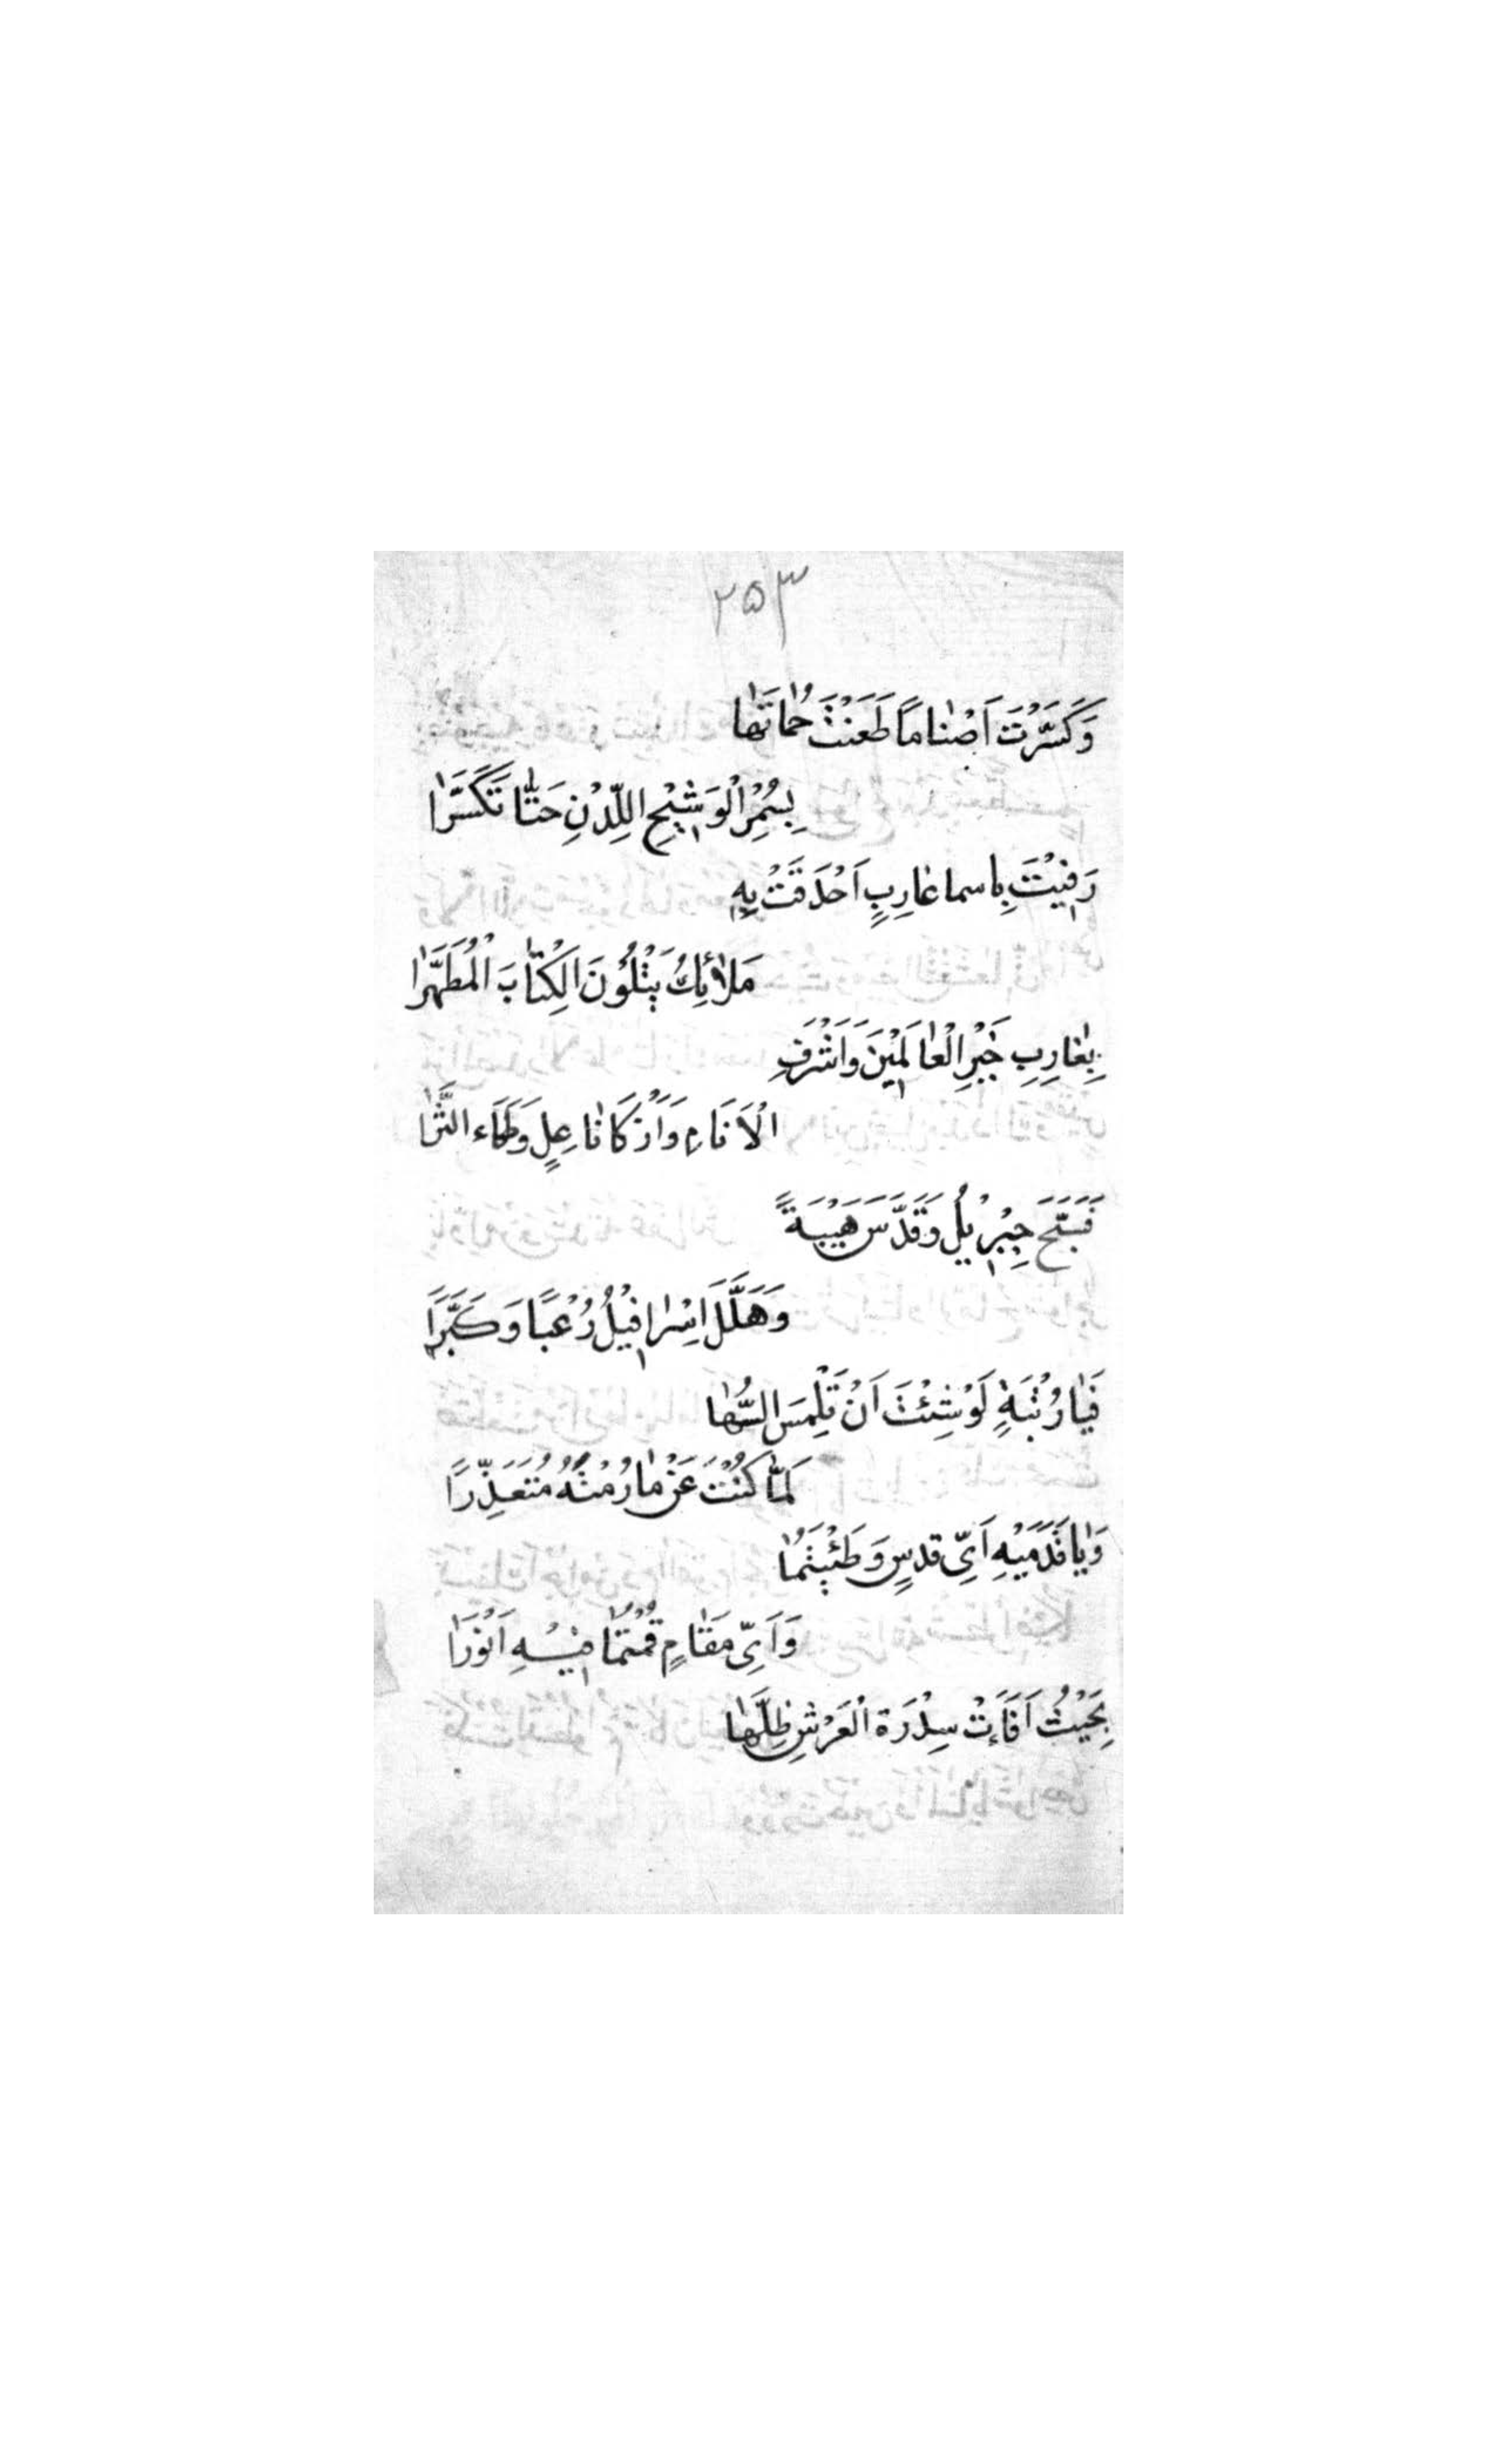 ٢٥٣
وَكَسَّرْتَ اَصْنامًا طَعَنْتَ حُماتَها
بِسُمْرِ الْوَشِيْجِ اللِّدْنِ حَتّٰا تَكَسَّرَا
رَقِيْتَ بِاسما غارِبٍ اَحْدَقَتْ بِهِ
مَلائِكُ يَتْلُوْنَ الْكِتابَ الْمُطَهَّرا
بِغارِبِ خَيْرِ الْعالَمِيْنَ وَاَشْرَفِ
الْاَنَامِ وَاَزْكَا ناعِلٍ وَطَاءَ الثَّرَا
فَسَبَّحَ جِبْرِيلُ وَقَدَّسَ هَيْبَةً
وَهَلَّلَ اِسْرافِيْلُ رُعْبًا وَكَبَّرَا
فَيا رُتْبَةٍ لَوْ شِئْتَ اَنْ تَلْمِسَ السُّها
لَمّا كُنْتَ عَنْ ما رُمْتَهُ مُتَعَذِّرًا
وَيا قَدَمَيْهِ اَيِّ قدسٍ وَطَئْيتُما
وَاَيِّ مَقامٍ قُمْتُما فِيْهِ اَنْوَرَا
بِحَيْثُ اَفَاءَتْ سِدْرَة الْعَرْشِ ظِلَّها